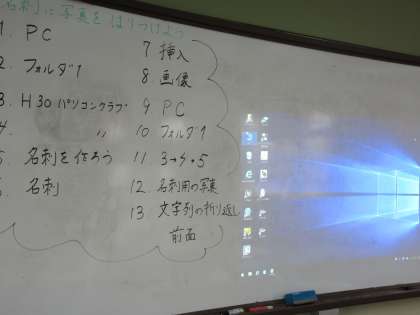 名刺に写真をはりつけよう
1. PC
2. フォルダ1
3. H30パソコンクラブ
4. 〃
5. 名刺を作ろう
6. 名刺
7 挿入
8 画像
9 PC
10 フォルダ1
11 3→4→5
12. 名刺用の写真
13 文字列の折り返し
前面